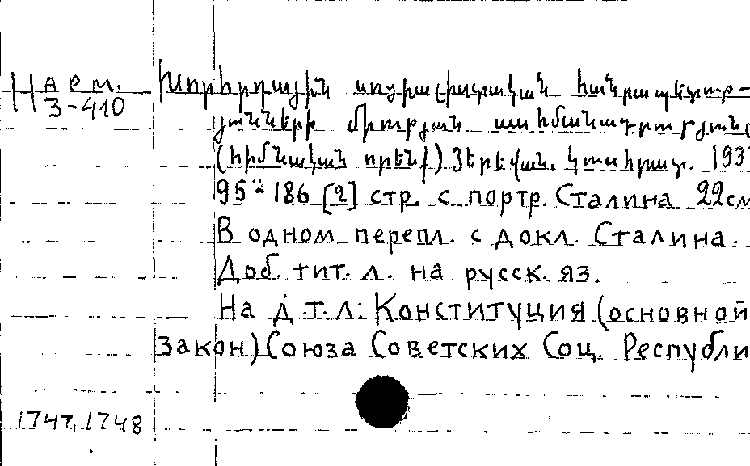 Н арм. Խորհրդային սոցիալիստական հանրապետութ-
3-410
յունների միության սահմանադրությունը
(հիմնական որենք) Յերեվան. կուսհրատ. 193
95÷186 [2] стр. с портр. Сталина 22см
В одном перепл. с докл. Сталина.
Доб. тит. л. на русск. яз.
На д. т. л: Конституция (основной
Закон) Союза Советских Соц. Республи
1747, 1748